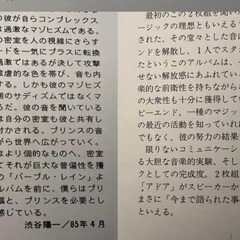 が彼が自らコンプレックス
は過激なマゾヒズムである。
の密室を人の視線にさらす
ードを一気にプラスに転換
激ではあるが決して攻撃
虐的な色を帯び、音も内
する。しかも彼のマゾヒズ
側のサディズムではなくマ
だ。彼の音を聞いている
は自分の密室も彼と共有し
付かされる。プリンスの音
がら世界へ広がっていく。
より個的なものへ、密室で
それが巨大な普遍性を獲
「パープル・レイン」よ
ルバムを前に、僕らはプリ
震と、プリンスを必要と
感じている。
渋谷陽一／85年4月
最初のこの2枚組を聞い
ージックの理想ともいえる
された。その堂々とした音の
ンドを解散し、1人でスタ
たというこのアルバムは、
楽的な前衛性を持ちながら
の大衆性も十分に獲得して
ピーエンド、一種のマジッ
の最近の活動を知っていれ
でもなく、彼の努力の結果
限りないコミュニケーシ
る大胆な音楽的実験、そし
としての完成度。2枚組ア
「アドア」がスピーカーか
まさに「今まで語られた事
といえる。